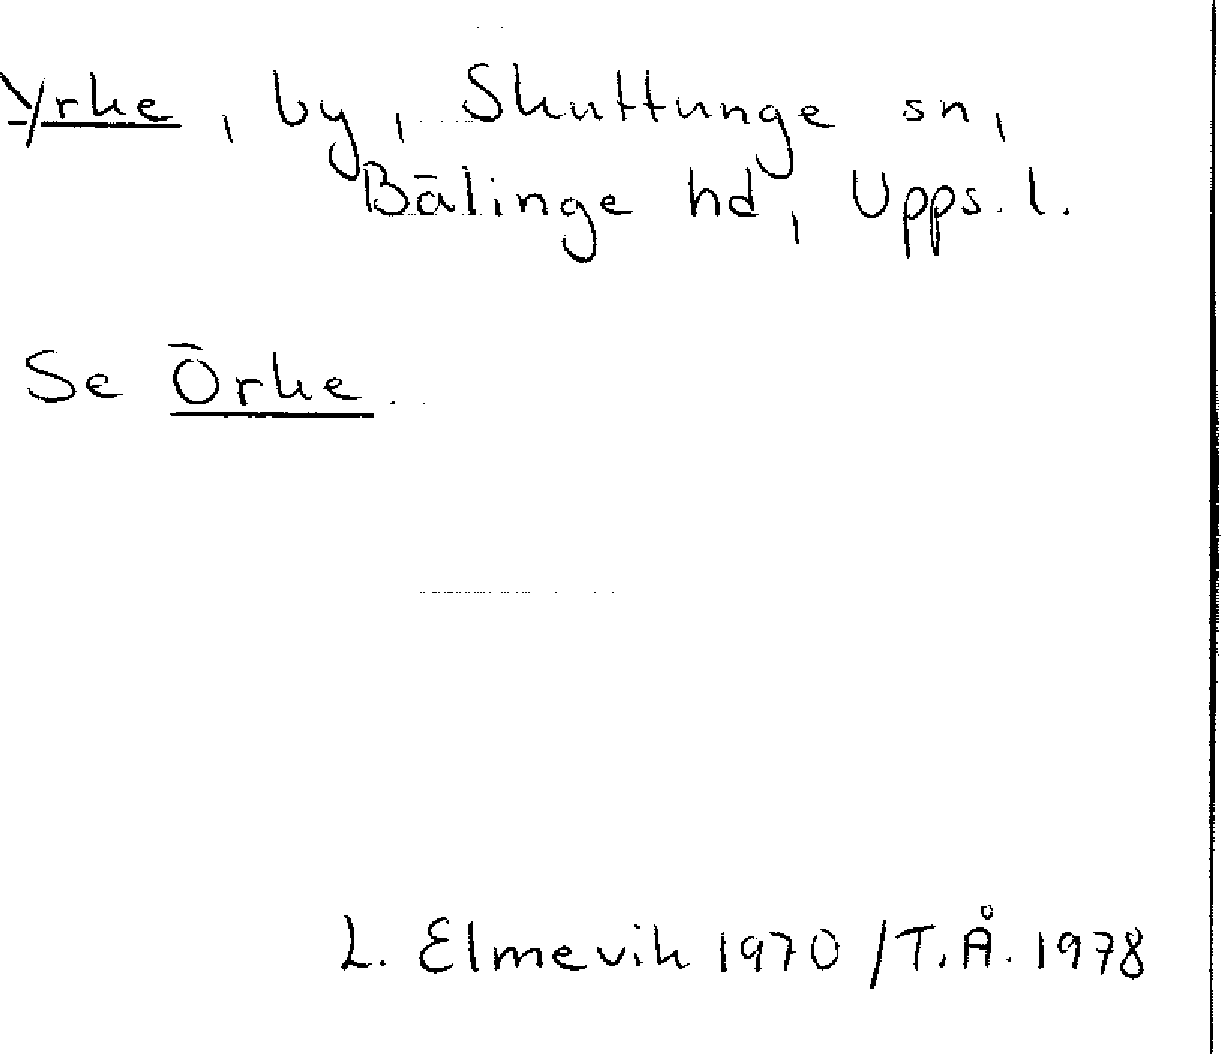 Yrke, by, Skuttunge sn,
Bälinge hd, Upps. l.
Se Örke.
L. Elmevik 1970 / T.Å. 1978